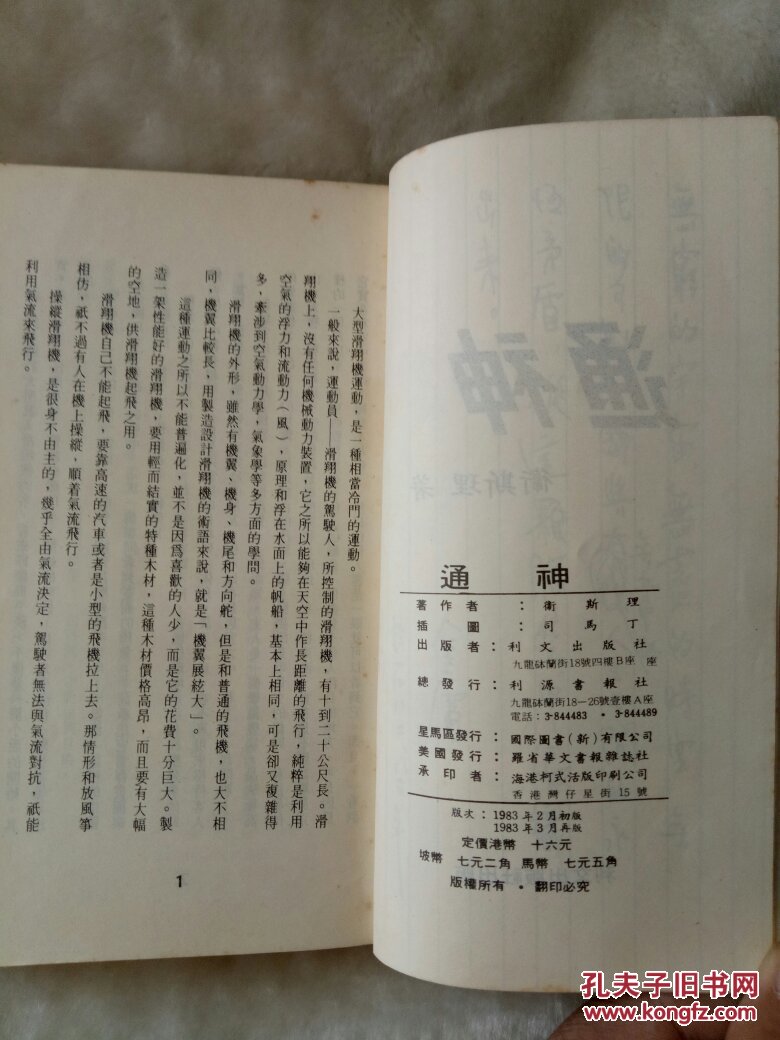 通神
著作者：衛斯理
插圖：司馬丁
出版者：利文出版社
九龍砵蘭街18號四樓B座 座
總發行：利源書報社
九龍砵蘭街18－26號壹樓A座
電話：3-844483 • 3-844489
星馬區發行：國際圖書(新)有限公司
美國發行：羅省華文書報雜誌社
承印者：海港柯式活版印刷公司
香港灣仔星街15號
版次：1983年2月初版
1983年3月再版
定價港幣 十六元
坡幣 七元二角 馬幣 七元五角
版權所有 • 翻印必究
大型滑翔機運動，是一種相當冷門的運動。
一般來說，運動員——滑翔機的駕駛人，所控制的滑翔機，有十到二十公尺長。滑
翔機上，沒有任何機械動力裝置，它之所以能夠在天空中作長距離的飛行，純粹是利用
空氣的浮力和流動力（風），原理和浮在水面上的帆船，基本上相同，可是卻又複雜得
多，牽涉到空氣動力學，氣象學等多方面的學問。
滑翔機的外形，雖然有機翼、機身、機尾和方向舵，但是和普通的飛機，也大不相
同，機翼比較長，用製造設計滑翔機的術語來說，就是「機翼展絃大」。
這種運動之所以不能普遍化，並不是因爲喜歡的人少，而是它的花費十分巨大。製
造一架性能好的滑翔機，要用輕而結實的特種木材，這種木材價格高昂，而且要有大幅
的空地，供滑翔機起飛之用。
滑翔機自己不能起飛，要靠高速的汽車或者是小型的飛機拉上去。那情形和放風箏
相仿，祇不過有人在機上操縱，順着氣流飛行。
操縱滑翔機，是很身不由主的，幾乎全由氣流決定，駕駛者無法與氣流對抗，祇能
利用氣流來飛行。
1
通神
衛斯理 著
孔夫子旧书网
www.kongfz.com